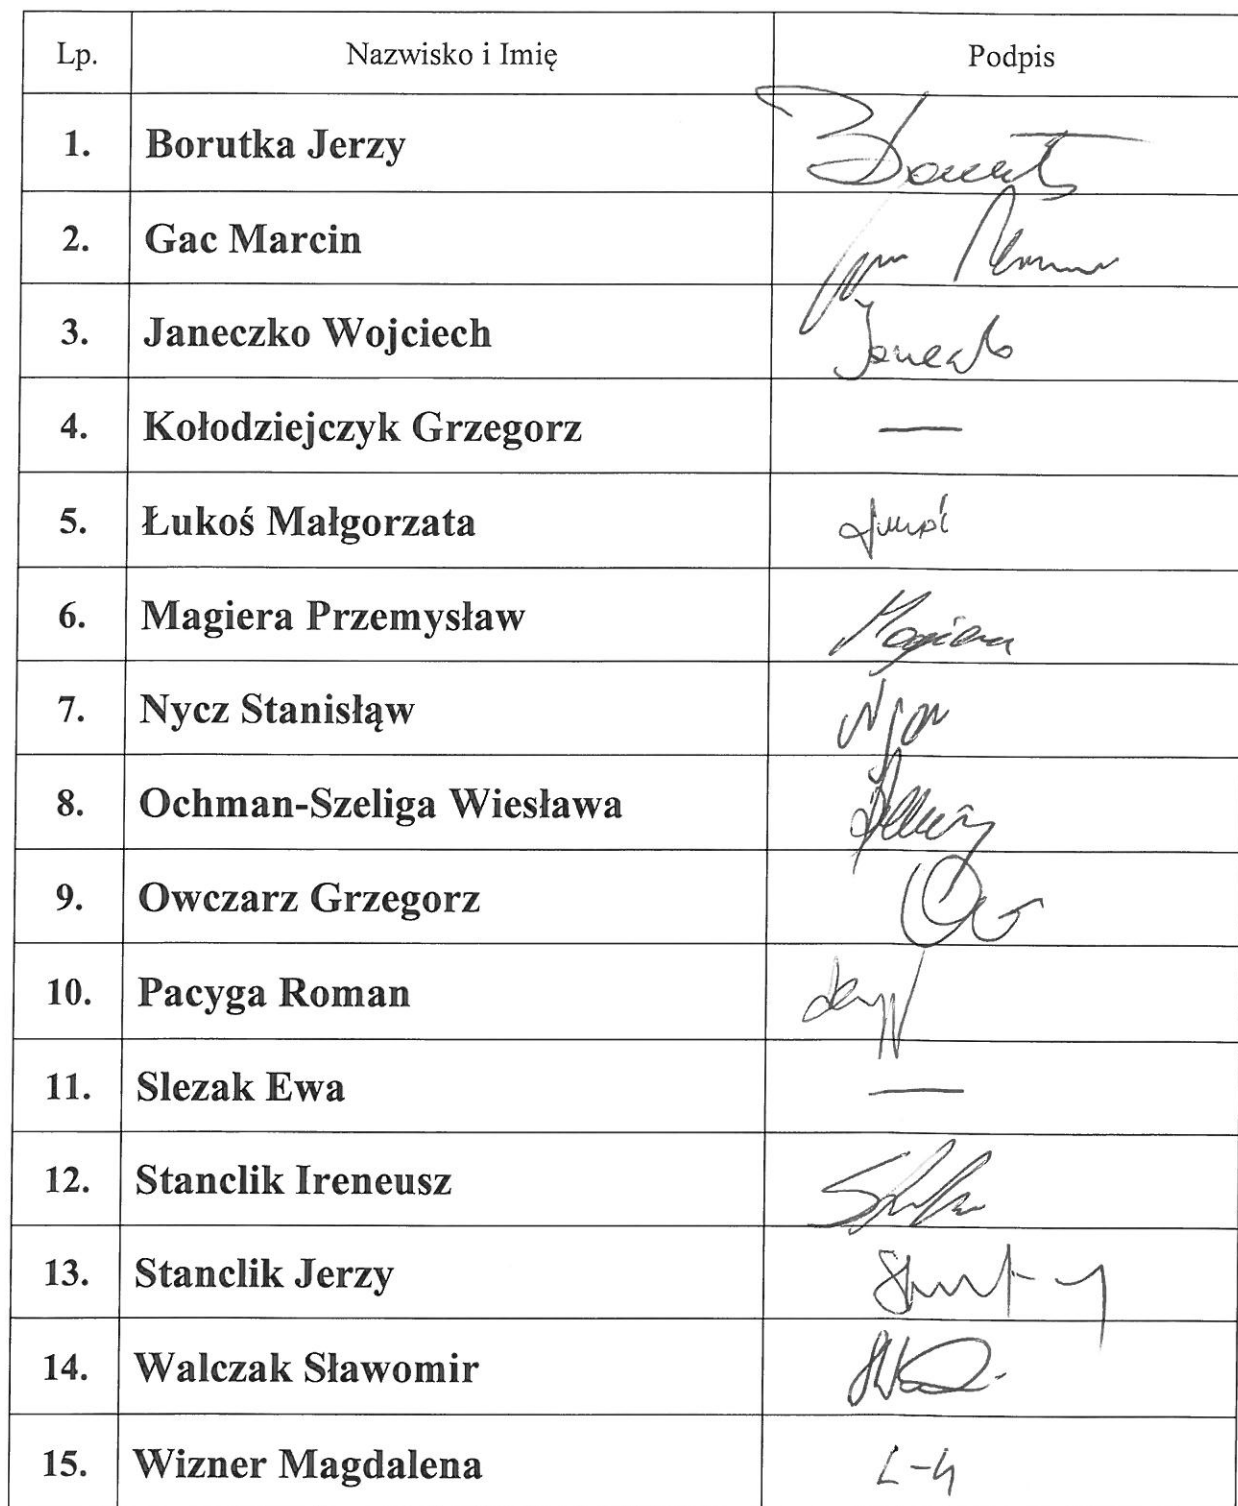 Lp. Nazwisko i Imię Podpis
1. Borutka Jerzy
2. Gac Marcin
3. Janeczko Wojciech
4. Kołodziejczyk Grzegorz —
5. Łukoś Małgorzata
6. Magiera Przemysław Magiera
7. Nycz Stanisłąw
8. Ochman-Szeliga Wiesława
9. Owczarz Grzegorz
10. Pacyga Roman
11. Slezak Ewa —
12. Stanclik Ireneusz
13. Stanclik Jerzy
14. Walczak Sławomir
15. Wizner Magdalena L-4